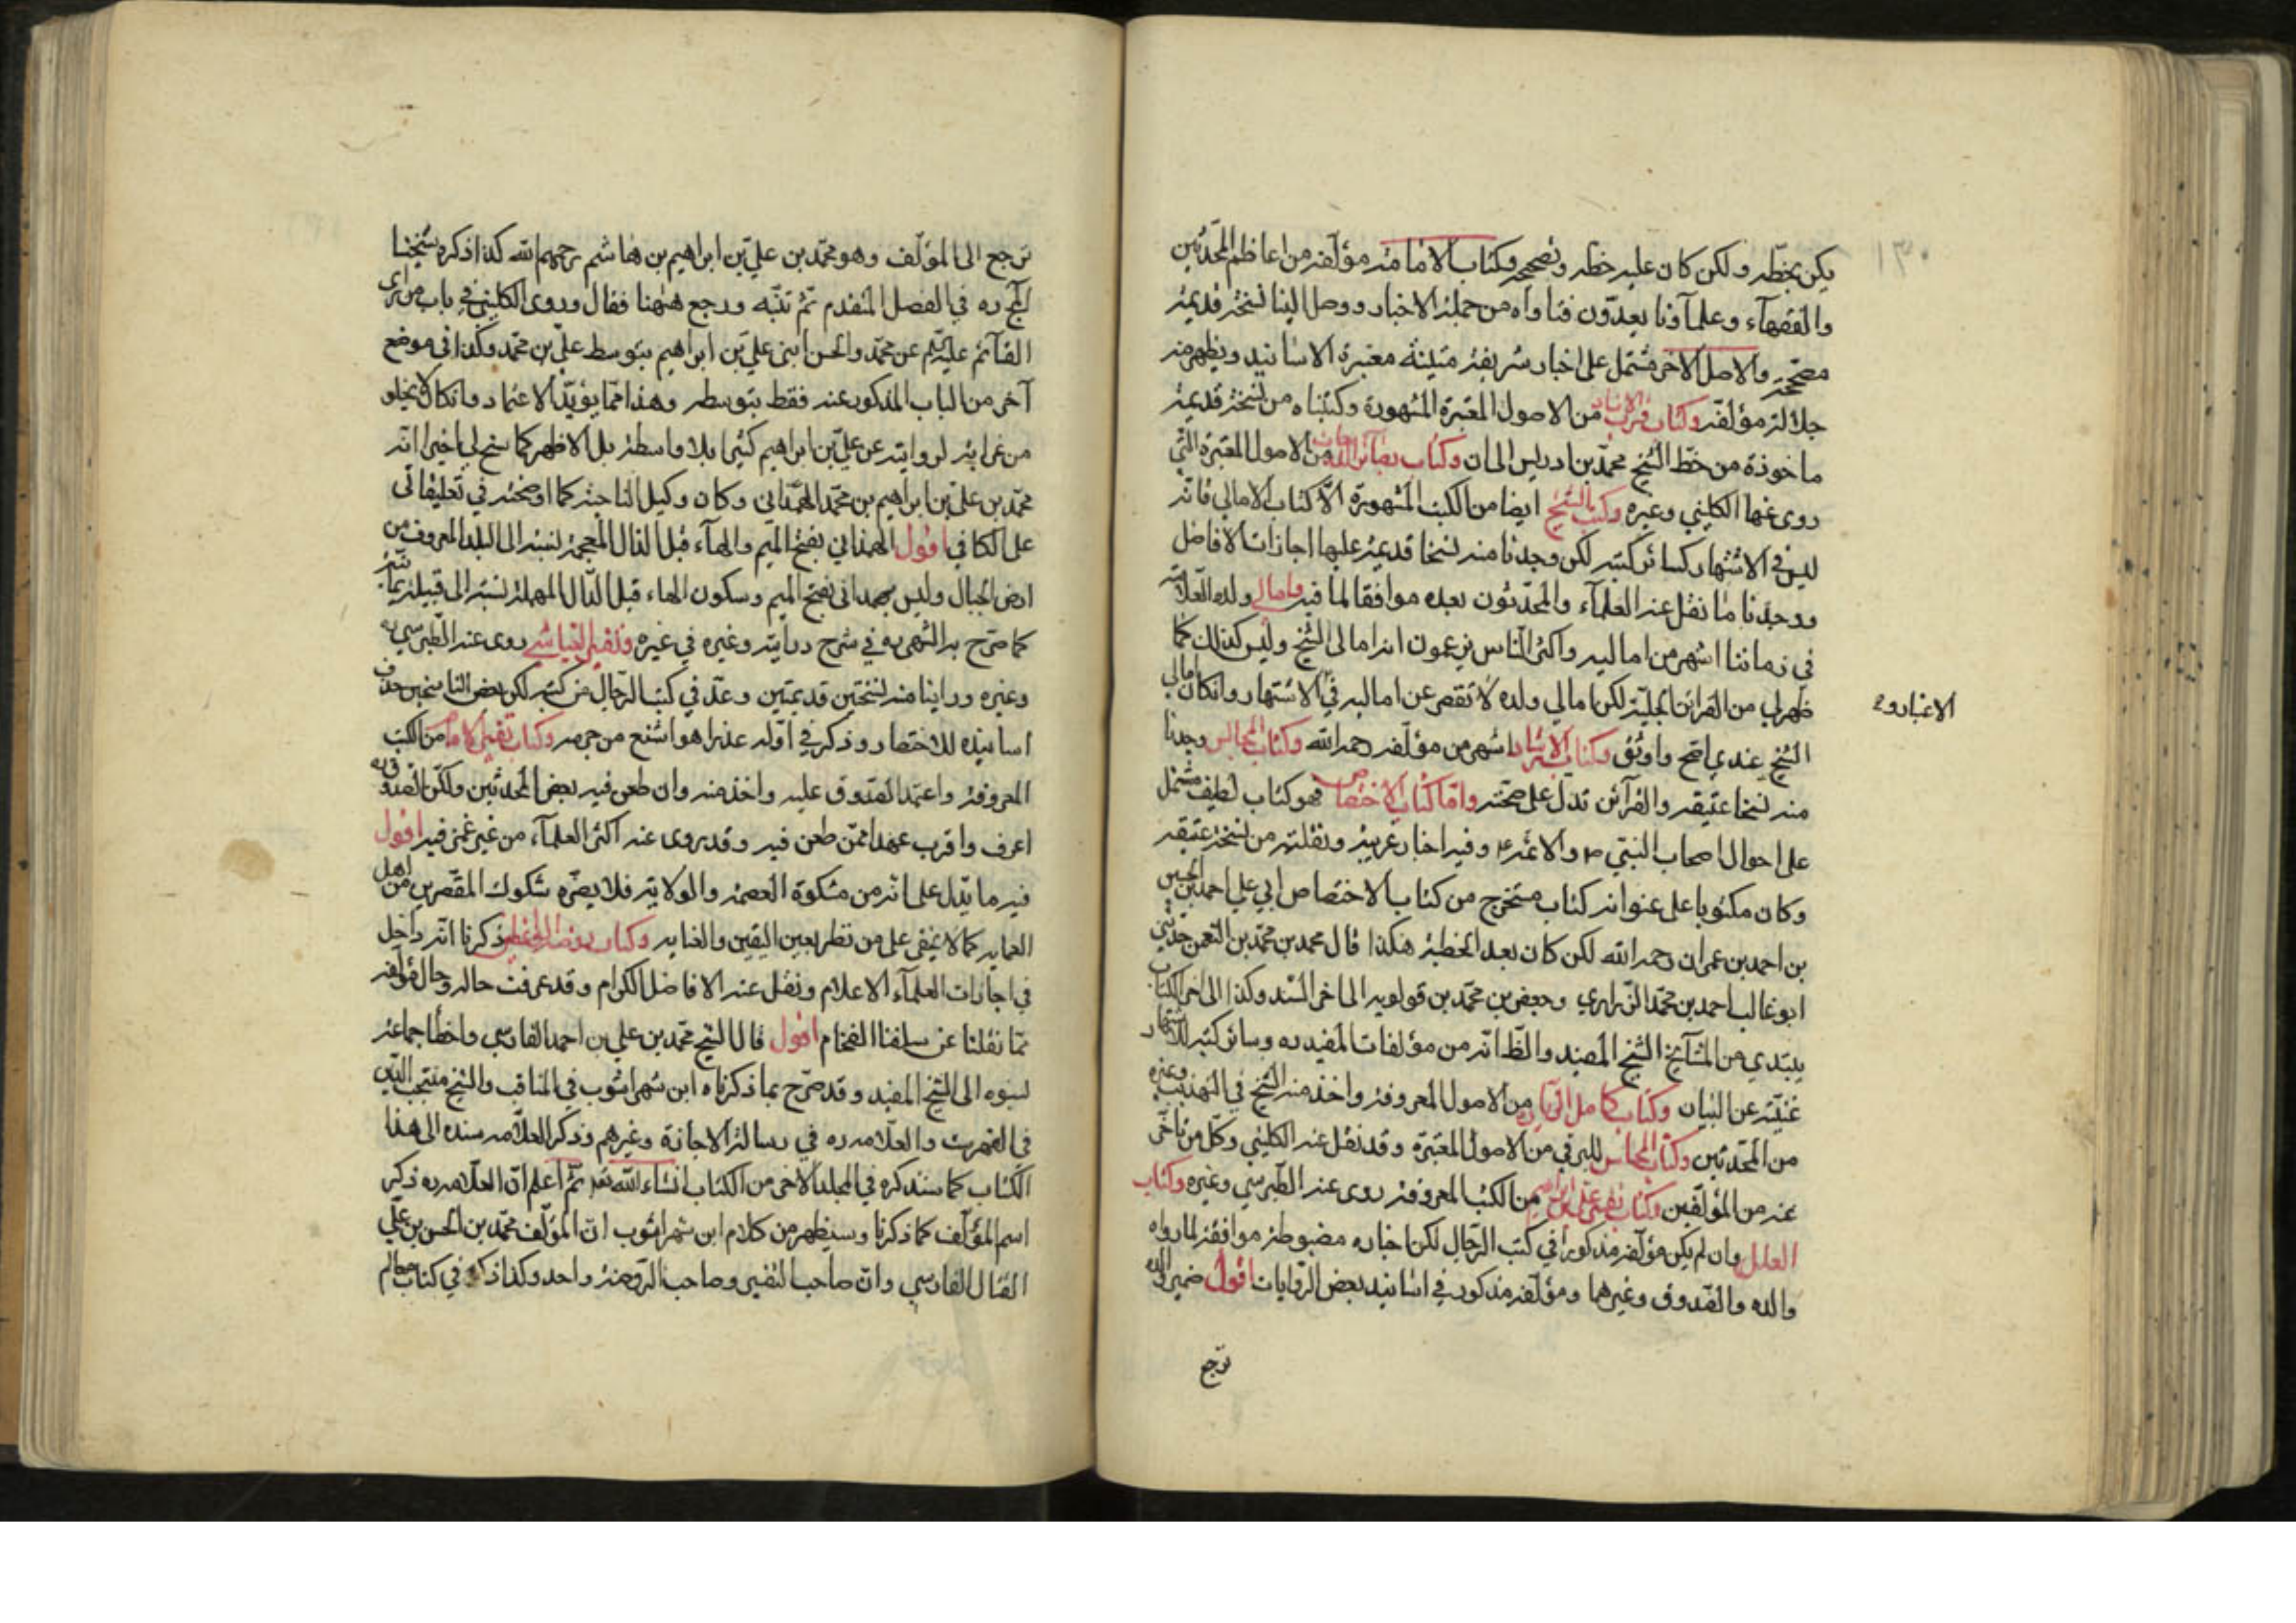 يكن بخطه ولكن كان عليه خطه وتصحيحه وكتاب الامامة مؤلفه من اعاظم المحدّثين
والفقهآء وعلمآؤنا يعدّون فتاواه من جملة الاخبار ووصل الينا نسخة قديمة
مصحّحة والاصل الآخر مشتمل على اخبار شريفة متينة معتبرة الاسانيد ويظهر منه
جلالة مؤلفه وكتاب قرب الاسناد من الاصول المعتبرة المشهورة وكتبناه من نسخة قديمة
ماخوذة من خطّ الشيخ محمّد بن ادريس الى ان وكتاب بصائر الدرجات من الاصول المعتبرة التّي
روى عنها الكليني وغيره وكتب الشيخ ايضا من الكتب المشهورة الّا كتاب الامالي فانّه
ليس في الاشتهار كسائر كتبه لكن وجدنا منه نسخا قديمة عليها اجازات الافاضل
ووجدنا ما نقل عنه العلمآء والمحدّثون بعده موافقا لما فيه وامالي ولده العلّامة
في زماننا اشهر من اماليه واكثر النّاس يزعمون انه امالى الشيخ وليس كذلك كما
ظهر لي من القرائن الجليّة لكن امالي ولده لا تقصر عن اماليه في الاشتهار وان كان امالي
الاعتبار و
الشيخ عندي اصح واوثق وكتاب الارشاد اشهر من مؤلفه رحمه الله وكتاب المجالس وجدنا
منه نسخا عتيقه والقرآئن تدلّ على صحّته وامّا كتاب الاختصاص فهو كتاب لطيف مشتمل
على احوال اصحاب النبي ص والائمة ع وفيه اخبار غريبة ونقلته من نسخة عتيقه
وكان مكتوبا على عنوانه كتاب مستخرج من كتاب الاختصاص ابي علي احمد بن الحسين
بن احمد بن عمران رحمه الله لكن كان بعد الخطبة هكذا قال محمد بن محمّد بن النعمن حدثني
ابو غالب احمد بن محمّد الزراري وجعفر بن محمّد بن قولويه الى اخر السّند وكذا الى اخر الكتاب
يبتدي من المشآيخ الشيخ المفيد والظّ انّه من مؤلفات المفيد ره وسائر كتبه للاشتهار
غنيّة عن البيان وكتاب كامل الزيارة من الاصول المعروفة واخذ منه الشيخ في التهذيب وغيره
من المحدّثين وكتاب المحاسن للبرقي من الاصول المعتبرة وقد نقل عنه الكليني وكلّ من تاخّر
عنه من المؤلفين وكتاب تفسير علي بن ابراهيم من الكتب المعروفة روى عنه الطّبرسي وغيره وكتاب
العلل وان لم يكن مؤلفه مذكورا في كتب الرّجال لكن اخباره مضبوطة موافقة لما رواه
والده والصّدوق وغيرهما ومؤلفه مذكور في اسانيد بعض الرّوايات اقول ضمير والده
ترجع
ترجع الى المؤلّف وهو محمّد بن عليّ بن ابراهيم بن هاشم رحمهم الله كذا ذكره شيخنا
الحجر ره في الفصل المتقدم ثمّ تنبّه ورجع هٰهنا فقال وروى الكليني في باب من راى
القآئم عليه السلام عن محمّد والحسن ابنى عليّ بن ابراهيم بتوسط عليّ بن محمّد وكذا في موضع
آخر من الباب المذكور عنه فقط بتوسطه وهذا ممّا يؤيّد الاعتماد وان كان لا يخلو
من غرابة لروايته عن عليّ بن ابراهيم كثيرا بلا واسطة بل الاظهر كما سنح لي اخيرا انّه
محمّد بن عليّ بن ابراهيم بن محمّد الهمداني وكان وكيل الناحية كما اوضحته في تعليقاتى
على الكافي اقول الهمذاني بفتح الميم والهآء قبل الذال المعجمة نسبة الى البلد المعروف من
ارض الجبال وليس بهمداني بفتح الميم وسكون الهاء قبل الدّال المهملة نسبة الى قبيلة يمانيّة
كما صرّح به الشهيد ره في شرح درايته وغيره في غيره وتفسير العياشي روى عنه الطّبرسي ره
وغيره وراينا منه نسختين قديمتين وعدّ في كتب الرّجال من كتبه لكن بعض الناسخين حذف
اسانيده للاختصار وذكر في اوّله عذرا هو اشنع من جرمه وكتاب تفسير الامام من الكتب
المعروفة واعتمد الصّدوق عليه واخذ منه وان طعن فيه بعض المحدثين ولكنّ الصّدوق ره
اعرف واقرب عهدا ممّن طعن فيه وقد روى عنه اكثر العلمآء من غير غمز فيه اقول
فيه ما يدلّ على انّه من مشكوة العصمة والولاية فلا يضرّه شكوك المقصّرين من اهل
العمايه كما لا يخفى على من نظر بعين اليقين والعنايه وكتاب روضة الواعظين ذكرنا انّه داخل
في اجازات العلمآء الاعلام ونقل عنه الافاضل الكرام وقد عرفت حاله وحال مؤلفه
ممّا نقلنا عن سلفنا الفخام اقول قال الشّيخ محمّد بن علي بن احمد الفارسي واخطأ جماعة
نسبوه الى الشيخ المفيد وقد صرّح بما ذكرناه ابن شهراشوب في المناقب والشيخ منتجب الدّين
في الفهرست والعلّامه ره في رسالة الاجازة وغيرهم وذكر العلّامه سنده الى هذا
الكتاب كما سنذكره في المجلد الاخر من الكتاب انشاء الله تعالى ثمّ اعلم انّ العلّامه ره ذكر
اسم المؤلّف كما ذكرنا وسيظهر من كلام ابن شهراشوب انّ المؤلّف محمّد بن الحسن بن عليّ
الفتال الفارسي وانّ صاحب التفسير وصاحب الرّوضة واحد وكذا ذكره في كتاب معالم